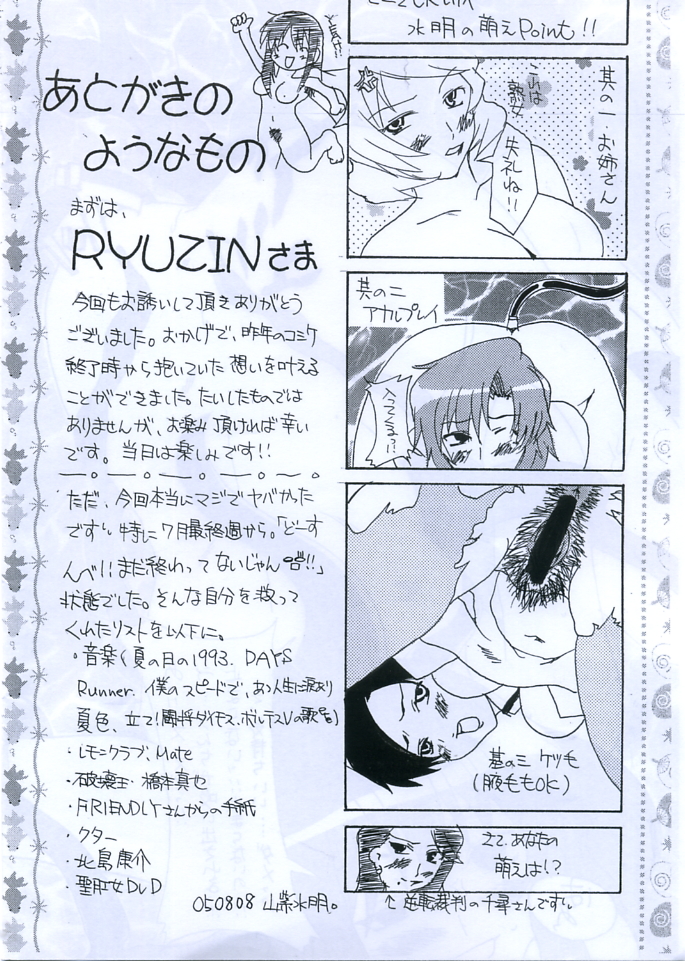 水明の萌えPoint!!
あとがきの
ようなもの
まずは、
RYUZINさま
今回もお誘いして頂きありがとう
ございました。おかげで、昨年のコミケ
終了時から抱いていた想いを叶える
ことができました。たいしたものでは
ありませんが、お楽み頂ければ幸い
です。当日は楽しみです!!
ただ、今回本当にマジでヤバかった
です。特に7月最終週から。「どーす
んべ!!まだ終わってないじゃん!!」
状態でした。そんな自分を救って
くれたリストを以下に。
・音楽(夏の日の1993. DAYS
Runner. 僕のスピードで、あゝ人生に涙あり
夏色、立て!闘将ダイモス、ボルテスVの歌etc)
・レモンクラブ、Mate
・破壊王・橋本真也
・FRIENDLYさんからの手紙
・クター
・北島康介
・聖肛女DVD
050808 山紫水明。
其の一・お姉さん
これは
熟女
失礼ね!!
其の二
アナルプレイ
入ってくるっ…!!
其の三 ケツ毛
(腋毛もOK)
さて、あなたの
萌えは!?
↑逆転裁判の千尋さんです。